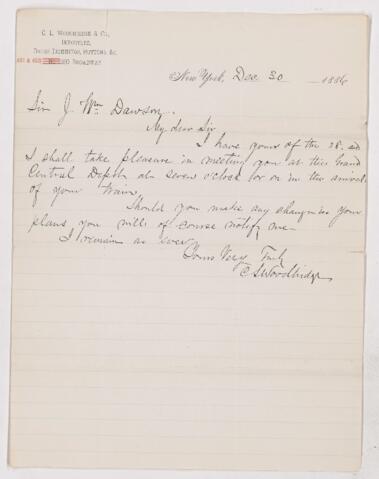 C. L. Woodbridge & Co.,
Importers,
Dress Trimmings, Buttons, &c.
Broadway
New York, Dec 30 1886
Sir J. Wm Dawson.
My dear Sir
I have yours of the 28.
I shall take pleasure in meeting you at the Grand
Central Depot at seven o'clock or on the arrival
of your train,
Should you make any change in your
plans you will of course notify me
I remain as ever
Yours Very Truly
C L Woodbridge